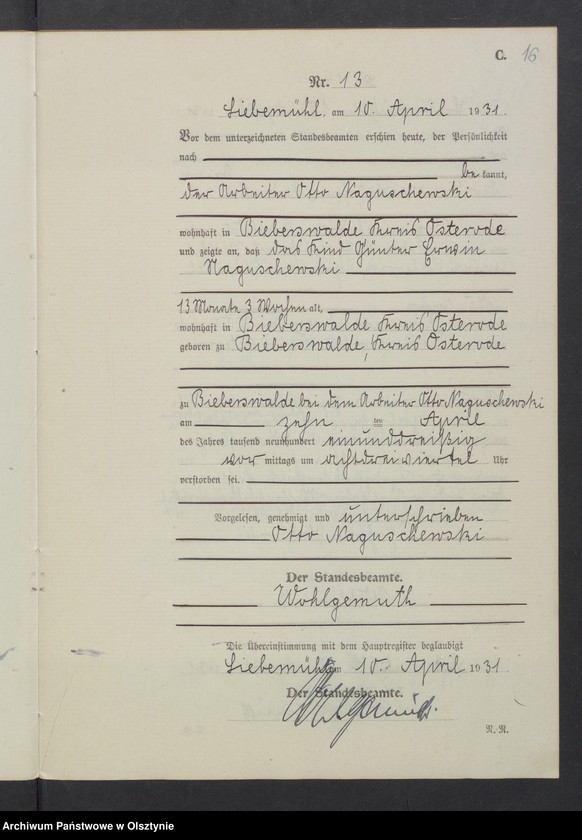 C. 16
Nr. 13
Liebemühl, am 10. April 1931.
Vor dem unterzeichneten Standesbeamten erschien heute, der Persönlichkeit
nach
be kannt,
der Arbeiter Otto Naguschewski
wohnhaft in Bieberswalde Kreis Osterode
und zeigte an, daß das Kind Günter Erwin
Naguschewski
13 Monate 3 Wochen alt,
wohnhaft in Bieberswalde Kreis Osterode
geboren zu Bieberswalde, Kreis Osterode
zu Bieberswalde bei dem Arbeiter Otto Naguschewski
am zehn ten April
des Jahres tausend neunhundert einunddreißig
vor mittags um achtdreiviertel Uhr
verstorben sei.
Vorgelesen, genehmigt und unterschrieben
Otto Naguschewski
Der Standesbeamte.
Wohlgemuth
Die Übereinstimmung mit dem Hauptregister beglaubigt
Liebemühl am 10. April 1931
Der Standesbeamte.
Wohlgemuth.
N. N.
Archiwum Państwowe w Olsztynie